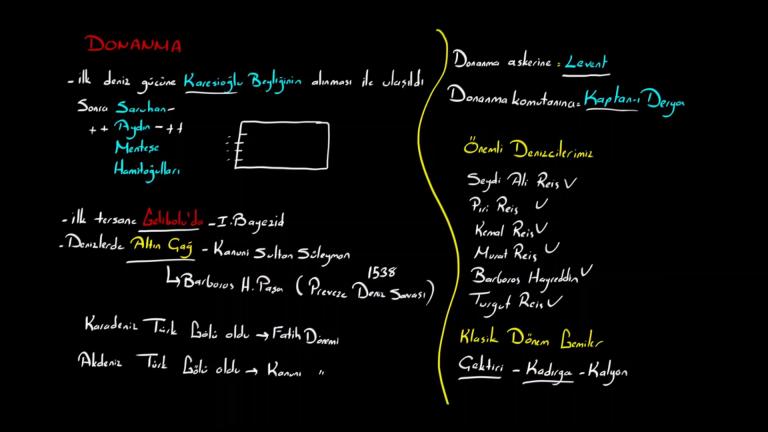 DONANMA
- ilk deniz gücüne Karesioğlu Beyliğinin alınması ile ulaşıldı
Sonra Saruhan -
++ Aydın - ++
Menteşe
Hamitoğulları
- ilk tersane Gelibolu'da - I. Bayezid
- Denizlerde Altın Çağ - Kanuni Sultan Süleyman
1538
↳ Barbaros H. Paşa ( Preveze Deniz Savaşı )
Karadeniz Türk Gölü oldu → Fatih Dönemi
Akdeniz Türk Gölü oldu → Kanuni "
Donanma askerine = Levent
Donanma komutanına = Kaptan-ı Derya
Önemli Denizcilerimiz
Seydi Ali Reis ✓
Piri Reis ✓
Kemal Reis ✓
Murat Reis ✓
Barbaros Hayreddin ✓
Turgut Reis ✓
Klasik Dönem Gemiler
Çektiri - Kadırga - Kalyon